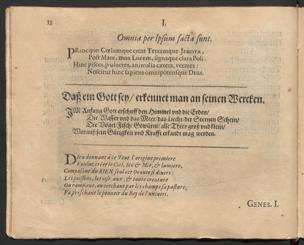 12
I.
Omnia per Ipsum facta sunt.
Principio Cœlumque creat Terramque JEHOVA,
Post Mare, mox Lucem, signaque clara Poli:
Hinc pisces, volucres, animalia cætera, vermes:
Noscitur hinc sapiens omnipotensque Deus.
Daß ein Gott sey/ erkennet man an seinen Wercken.
IM Anfang Gott erschuff den Himmel und die Erden/
Die Wasser und das Meer/ das Liecht der Sternen Schein/
Die Vögel/ Fisch/ Gewürm/ alle Thier groß und klein/
Warauß sein Gütigkeit und Krafft erkandt mag werden.
Dieu donnant à ce Tout l'origine premiere
Voulut créer le Ciel, la Mer, & lumiere,
Composant du RIEN seul cet Oeuvre divers:
Les poissons, les oiseaux, & toute creature
Ou rampant, ou cerchant par les champs sa pasture,
Fit preschant le pouvoir du Roy de l'univers.
GENES. I.